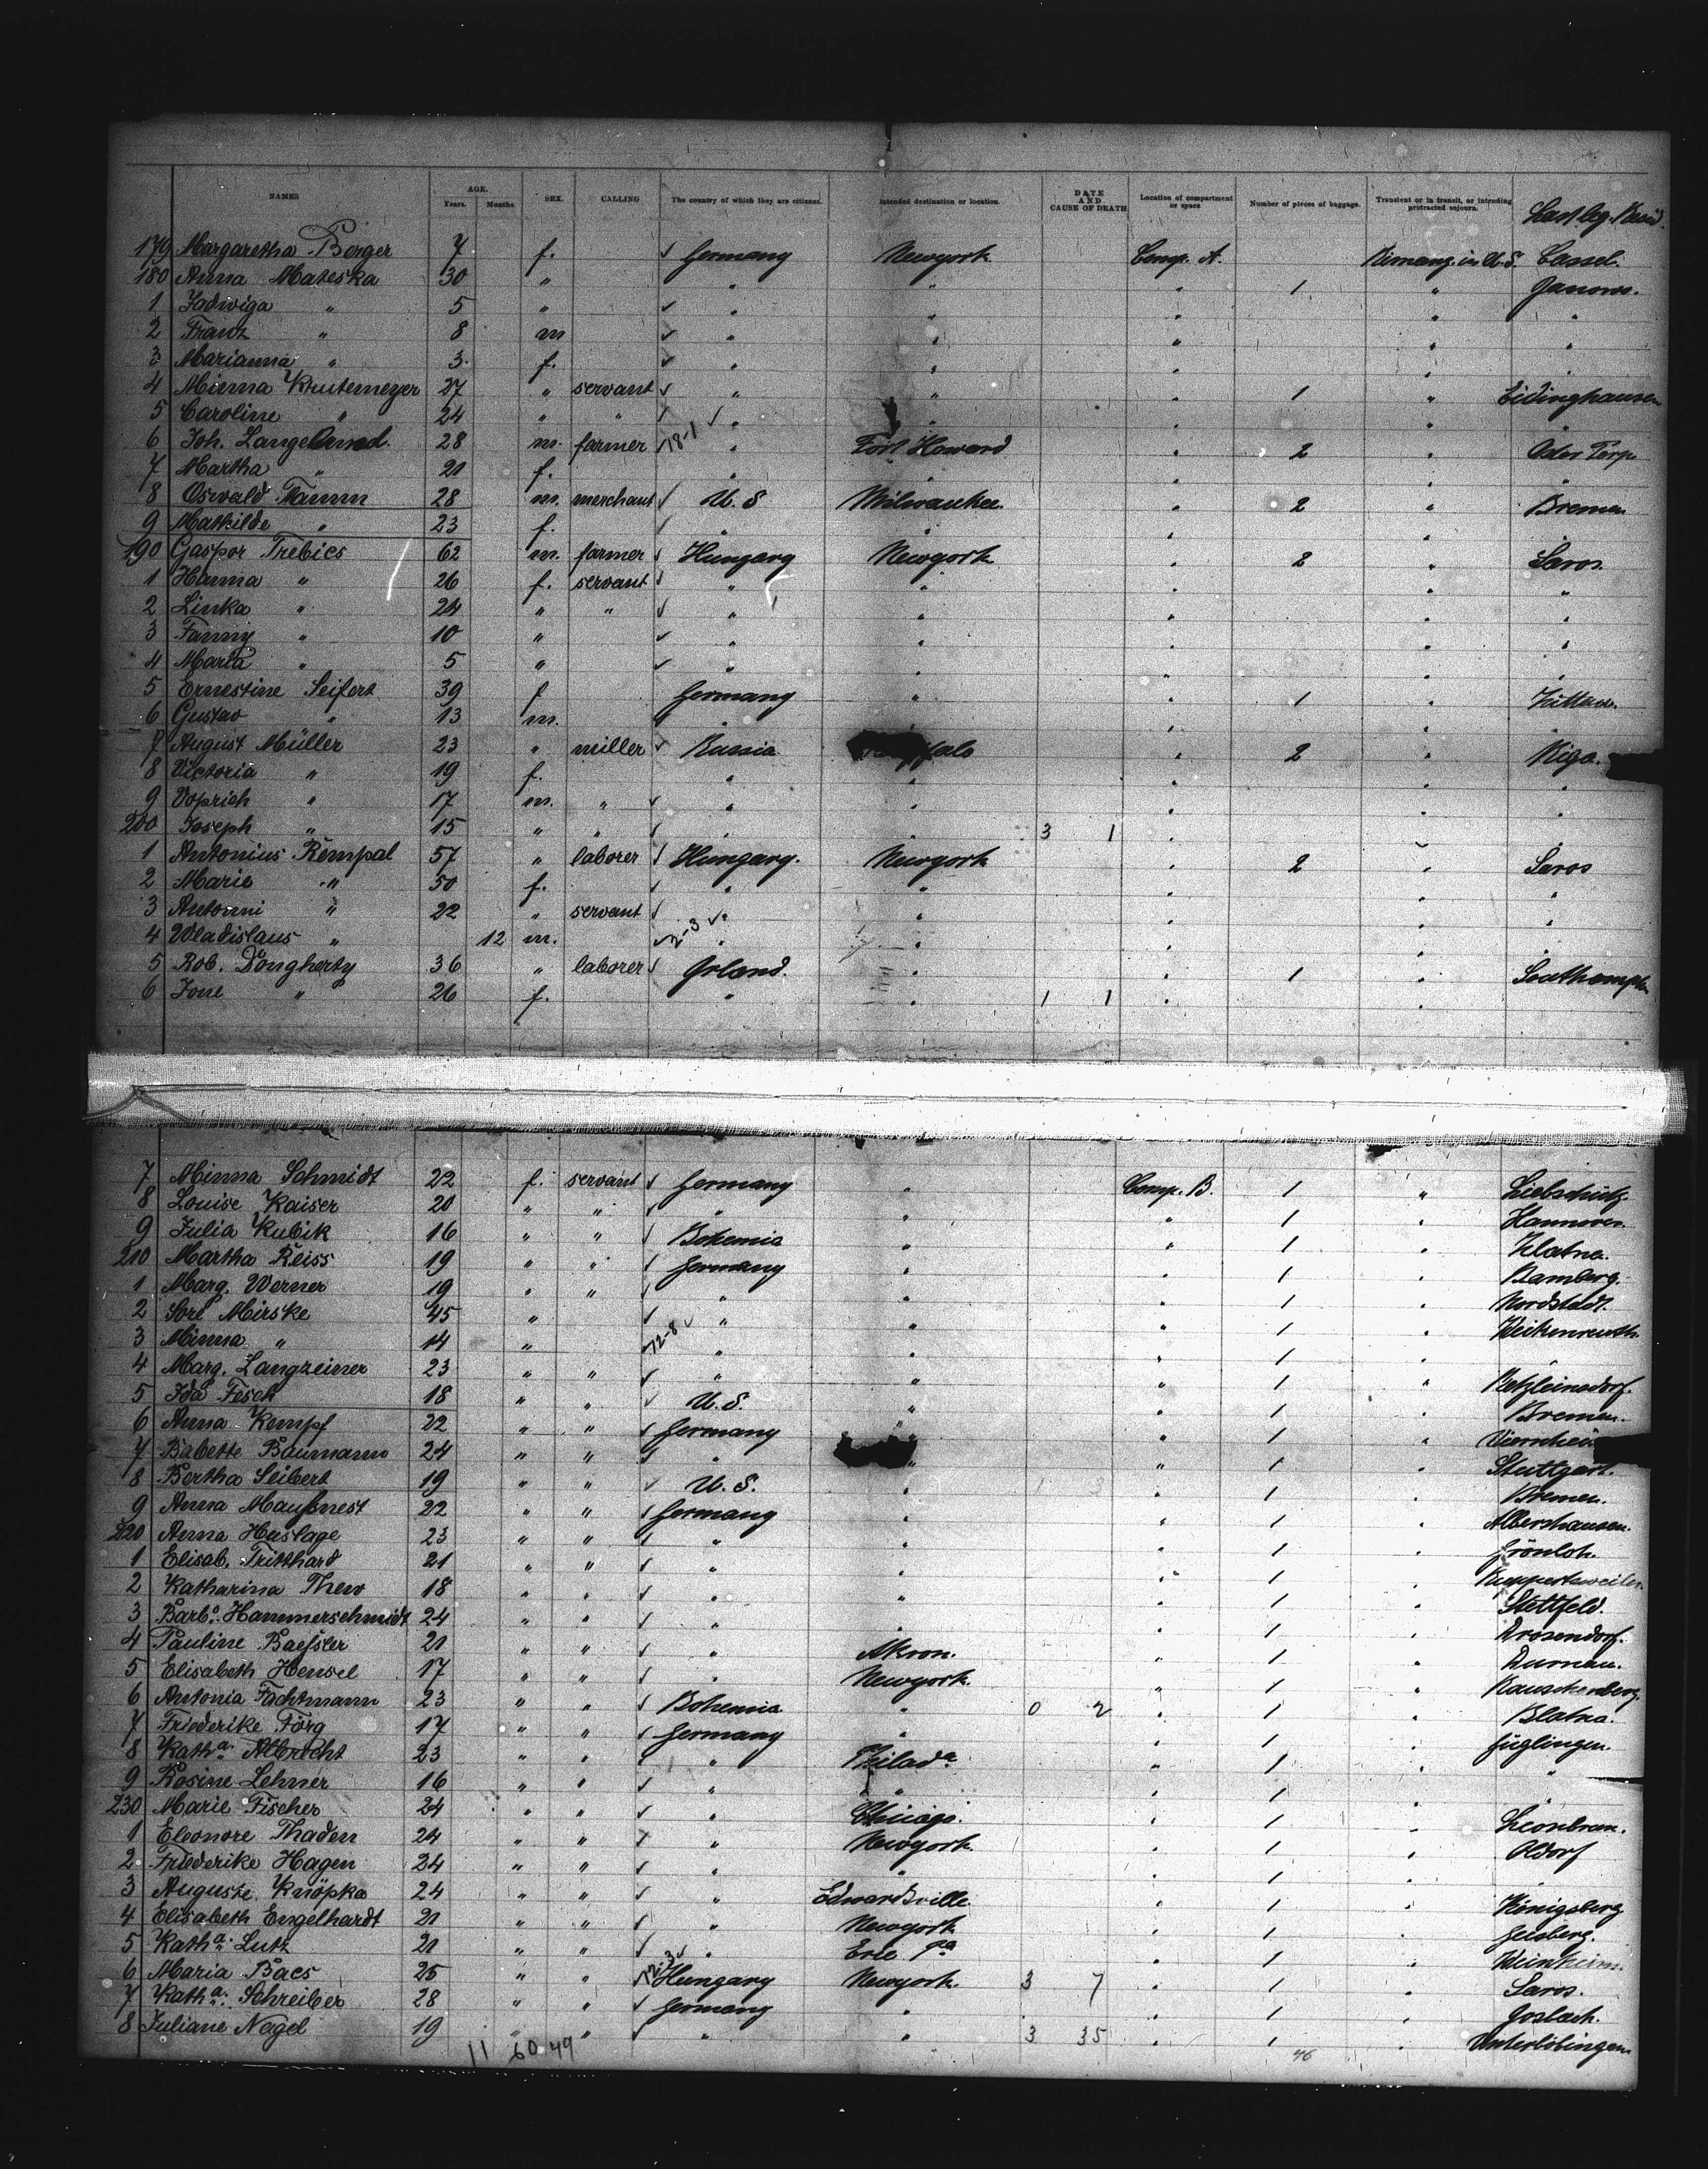 NAMES AGE. Years. Months. SEX. CALLING The country of which they are citizens. Intended destination or location. DATE AND CAUSE OF DEATH Location of compartment or space Number of pieces of baggage. Transient or in transit, or intending protracted sojourn. Last leg. Resid.
179 Margaretha Berger 7 f. ✓ Germany Newyork Comp. A. in U.S. Cassel.
180 Anna Mateska 30 " " " " 1 " Janowo.
1 Jadwiga " 5 " ✓ " " " " "
2 Franz " 8 m ✓ " " " " "
3 Marianna " 3. f. ✓ " " " " "
4 Minna Krutemeyer 27 " servant ✓ " " " 1 " Eidinghausen
5 Caroline " 24 " " ✓ " " " " "
6 Joh. Lange 28 m. farmer ✓ 18-1 " Fort Howard " 2 "
7 Martha " 21 f. " " " " "
8 Oswald Tamm 28 m. merchant ✓ U. S Milwaukee. " 2 " Bremen
9 Mathilde " 23 f. ✓ " " " " "
190 Gaspor Trebics 62 m. farmer ✓ Hungary Newyork " 2 " Saros.
1 Hanna " 26 f. servant ✓ " " " " "
2 Linka " 24 " " ✓ " " " " "
3 Fanny " 10 " ✓ " " " " "
4 Maria " 5 " ✓ " " " " "
5 Ernestine Seifert 39 f Germany " " 1 " Zittau.
6 Gustav " 13 m. " " " " "
7 August Müller 23 " miller ✓ Russia " 2 " Riga.
8 Victoria " 19 f. " " " " "
9 Voprich " 17 m. " ✓ " " " " "
200 Joseph " 15 " " ✓ " " 3 1 "
1 Antonius Rempal 57 " laborer ✓ Hungary. Newyork " 2 " Saros
2 Marie " 50 f. ✓ " " " " "
3 Antonni " 22 " servant ✓ " " " " "
4 Wladislaus " 12 m. ✓ 2-3 " " " "
5 Rob. Dougherty 36 " laborer ✓ Irland. " " 1 " Southampton
6 Jone " 26 f. " " 1 1 " "
7 Minna Schmidt 22 f. servant ✓ Germany " Comp. B. 1 " Liebschütz
8 Louise Kaiser 20 " " ✓ " " " 1 Hannover.
9 Julia Kubik 16 " " ✓ Bohemia " " 1 " Zlatna.
210 Martha Reiss 19 " " ✓ Germany " 1 " Bamberg.
1 Marg. Werner 19 " " ✓ " " " 1 " Nordstedt.
2 Sore Mirske 45 " ✓ " " " 1 "
3 Minna " 14 " ✓ 12-8 " " " 1 " "
4 Marg. Langzeiner 23 " " ✓ " " " 1 " Ketzleinsdorf.
5 Ida Fesch 18 " " ✓ U. S. " " 1 " Bremen.
6 Anna Kempf 22 " " ✓ Germany " " 1 " Viernheim
7 Babette Baumann 24 " " ✓ " " " 1 Stuttgart.
8 Bertha Seibert 19 " " ✓ U. S. " 1 3 " 1 " Bremen.
9 Anna Maußnest 22 " " ✓ Germany " " 1 " Albershausen.
220 Anna Huslage 23 " " ✓ " " 1 " Grönloh.
1 Elisab. Tritthard 21 " " ✓ " " " 1 " Ruppertsweiler.
2 Katharina Thew 18 " " ✓ " " " 1 Stettfeld.
3 Barba. Hammerschmidt 24 " " ✓ " " 1 " Drosendorf.
4 Pauline Baeßler 21 " " ✓ " Akron. " 1 " Durnau.
5 Elisabeth Hensel 17 " " ✓ " Newyork. " 1 " Rauschenberg.
6 Antonia Fachtmann 23 " " ✓ Bohemia " 0 2 " 1 " Blatna.
7 Friederike Förg 17 " " ✓ Germany " " 1 " Güglingen.
8 Katha. Albrecht 23 " " " Philada. " 1 " "
9 Rosine Lehner 16 " " ✓ " " " 1 "
230 Marie Fischer 24 " " ✓ " Chicago. " 1 " Leonbrun.
1 Eleonore Thaden 24 " " ✓ " Newyork " 1 " Oldorf
2 Friederike Hagen 24 " " ✓ " " " 1 " "
3 Auguste Knöpke 24 " " ✓ " Edwardsville " 1 " Königsberg
4 Elisabeth Engelhardt 21 " " ✓ " Newyork " 1 Geisberg.
5 Katha. Lutz 21 " " ✓ " Erie Pa " 1 " Weinheim.
6 Maria Bacs 25 " " ✓ Hungary Newyork. 3 7 " 1 " Saros.
7 Katha. Schreiber 28 " " ✓ Germany " " 1 " Goslach.
8 Juliane Nagel 19 " " ✓ " " 3 35 " 1 " Unterböbingen
11 60 49 46